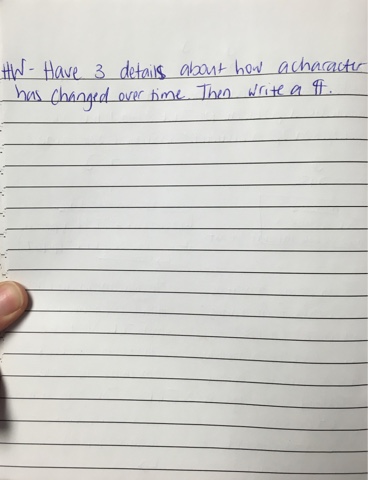 HW- Have 3 details about how a character
has changed over time. Then write a ¶.